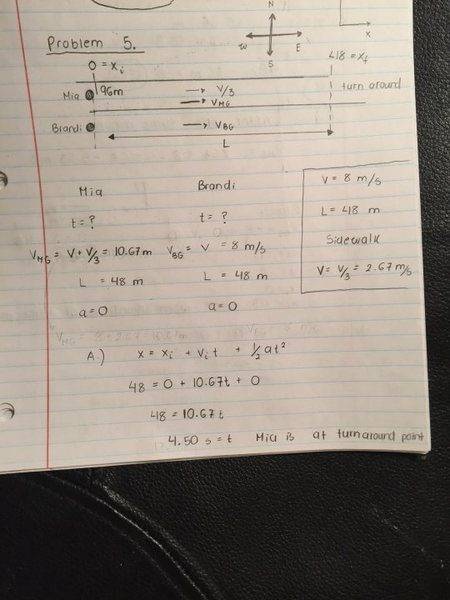 N
W E
S
x
Problem 5.
0 = xi
48 = xf
Mia 96m → V/3 turn around
→ VMG
Brandi → VBG
L
Mia Brandi
t = ? t = ?
VMG = V + V/3 = 10.67 m VBG = V = 8 m/s
L = 48 m L = 48 m
a = 0 a = 0
V = 8 m/s
L = 48 m
Sidewalk
V = V/3 = 2.67 m/s
A.) x = xi + Vi t + 1/2 at²
48 = 0 + 10.67t + 0
48 = 10.67t
4.50 s = t Mia is at turnaround point